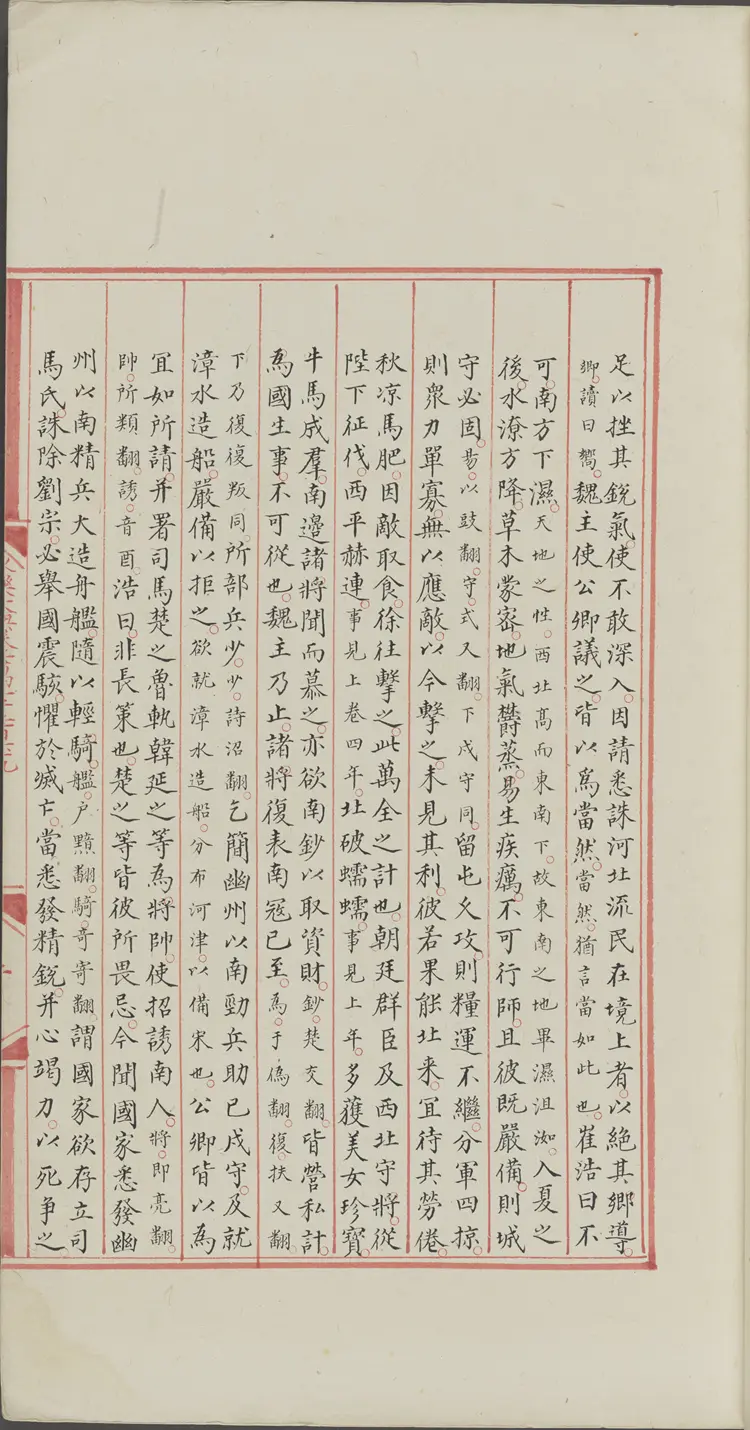 足以挫其銳氣使不敢深入因請悉誅河北流民在境上者以絕其鄉導
鄉讀曰嚮魏主使公卿議之皆以為當然當然猶言當如此也崔浩曰不
可南方下濕天地之性西北高而東南下故東南之地畢濕沮洳入夏之
後水潦方降草木蒙密地氣鬱蒸易生疾癘不可行師且彼既嚴備則城
守必固易以豉翻守式又翻下戍守同留屯久攻則糧運不繼分軍四掠
則衆力單寡無以應敵以今擊之未見其利彼若果能北来宜待其勞倦
秋凉馬肥因敵取食徐往擊之此萬全之計也朝廷群臣及西北守將從
陛下征伐西平赫連事見上卷四年北破蠕蠕事見上年多獲美女珍寶
牛馬成羣南邊諸將聞而慕之亦欲南鈔以取資財鈔楚交翻皆營私計
為國生事不可從也魏主乃止諸將復表南冦已至為于偽翻復扶又翻
下乃復復叛同所部兵少少詩沼翻乞簡幽州以南勁兵助已戍守及就
漳水造船嚴備以拒之欲就漳水造船分布河津以備宋也公卿皆以為
宜如所請并署司馬楚之魯軌韓延之等為將帥使招誘南人將即亮翻
帥所類翻誘音酉浩曰非長策也楚之等皆彼所畏忌今聞國家悉發幽
州以南精兵大造舟艦隨以輕騎艦户黯翻騎奇寄翻謂國家欲存立司
馬氏誅除劉宗必舉國震駭懼於滅亡當悉發精銳并心竭力以死争之